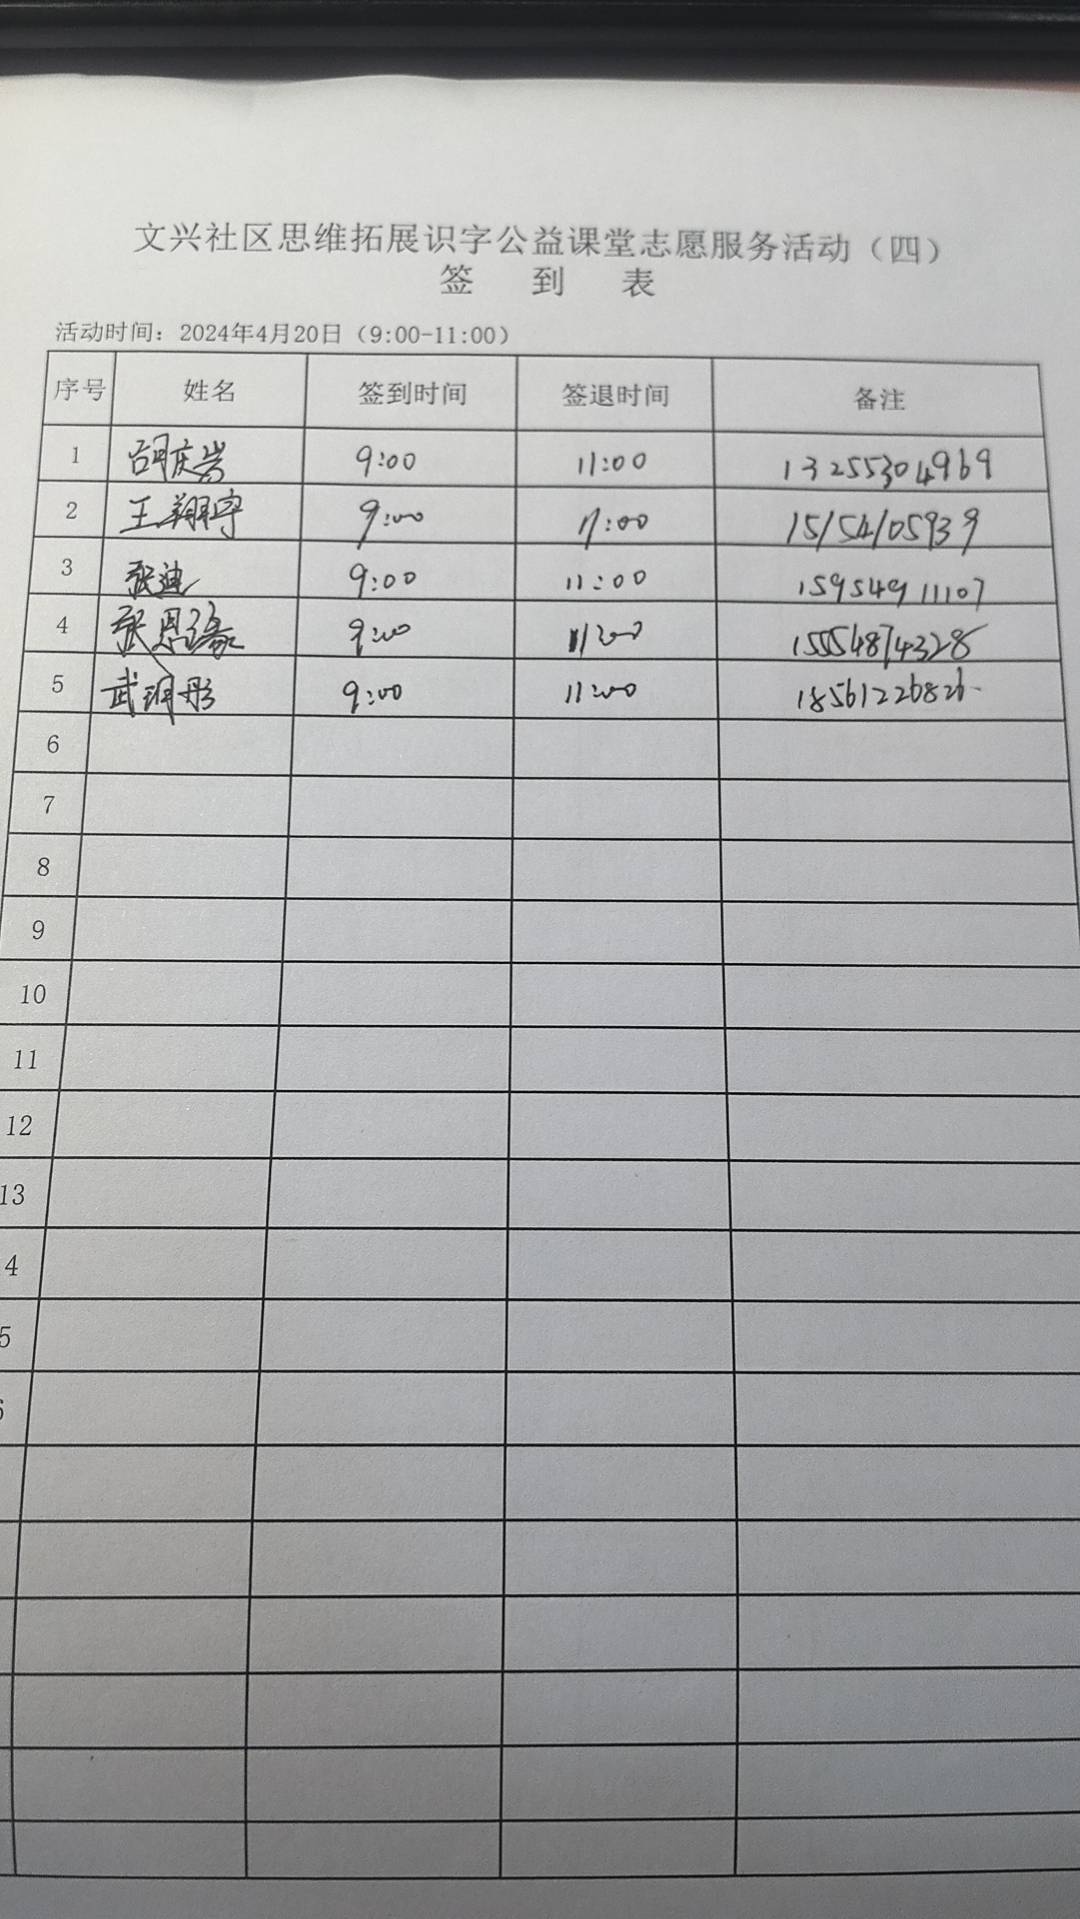 文兴社区思维拓展识字公益课堂志愿服务活动（四）
签 到 表
活动时间：2024年4月20日（9:00-11:00）
序号 姓名 签到时间 签退时间 备注
1 庆 9:00 11:00 13255304969
2 王翔宇 9:00 11:00 15154105939
3 张迪 9:00 11:00 15954911107
4 张恩缘 9:00 11:00 15554874328
5 武玥彤 9:00 11:00 18561226826
6
7
8
9
10
11
12
13
4
5